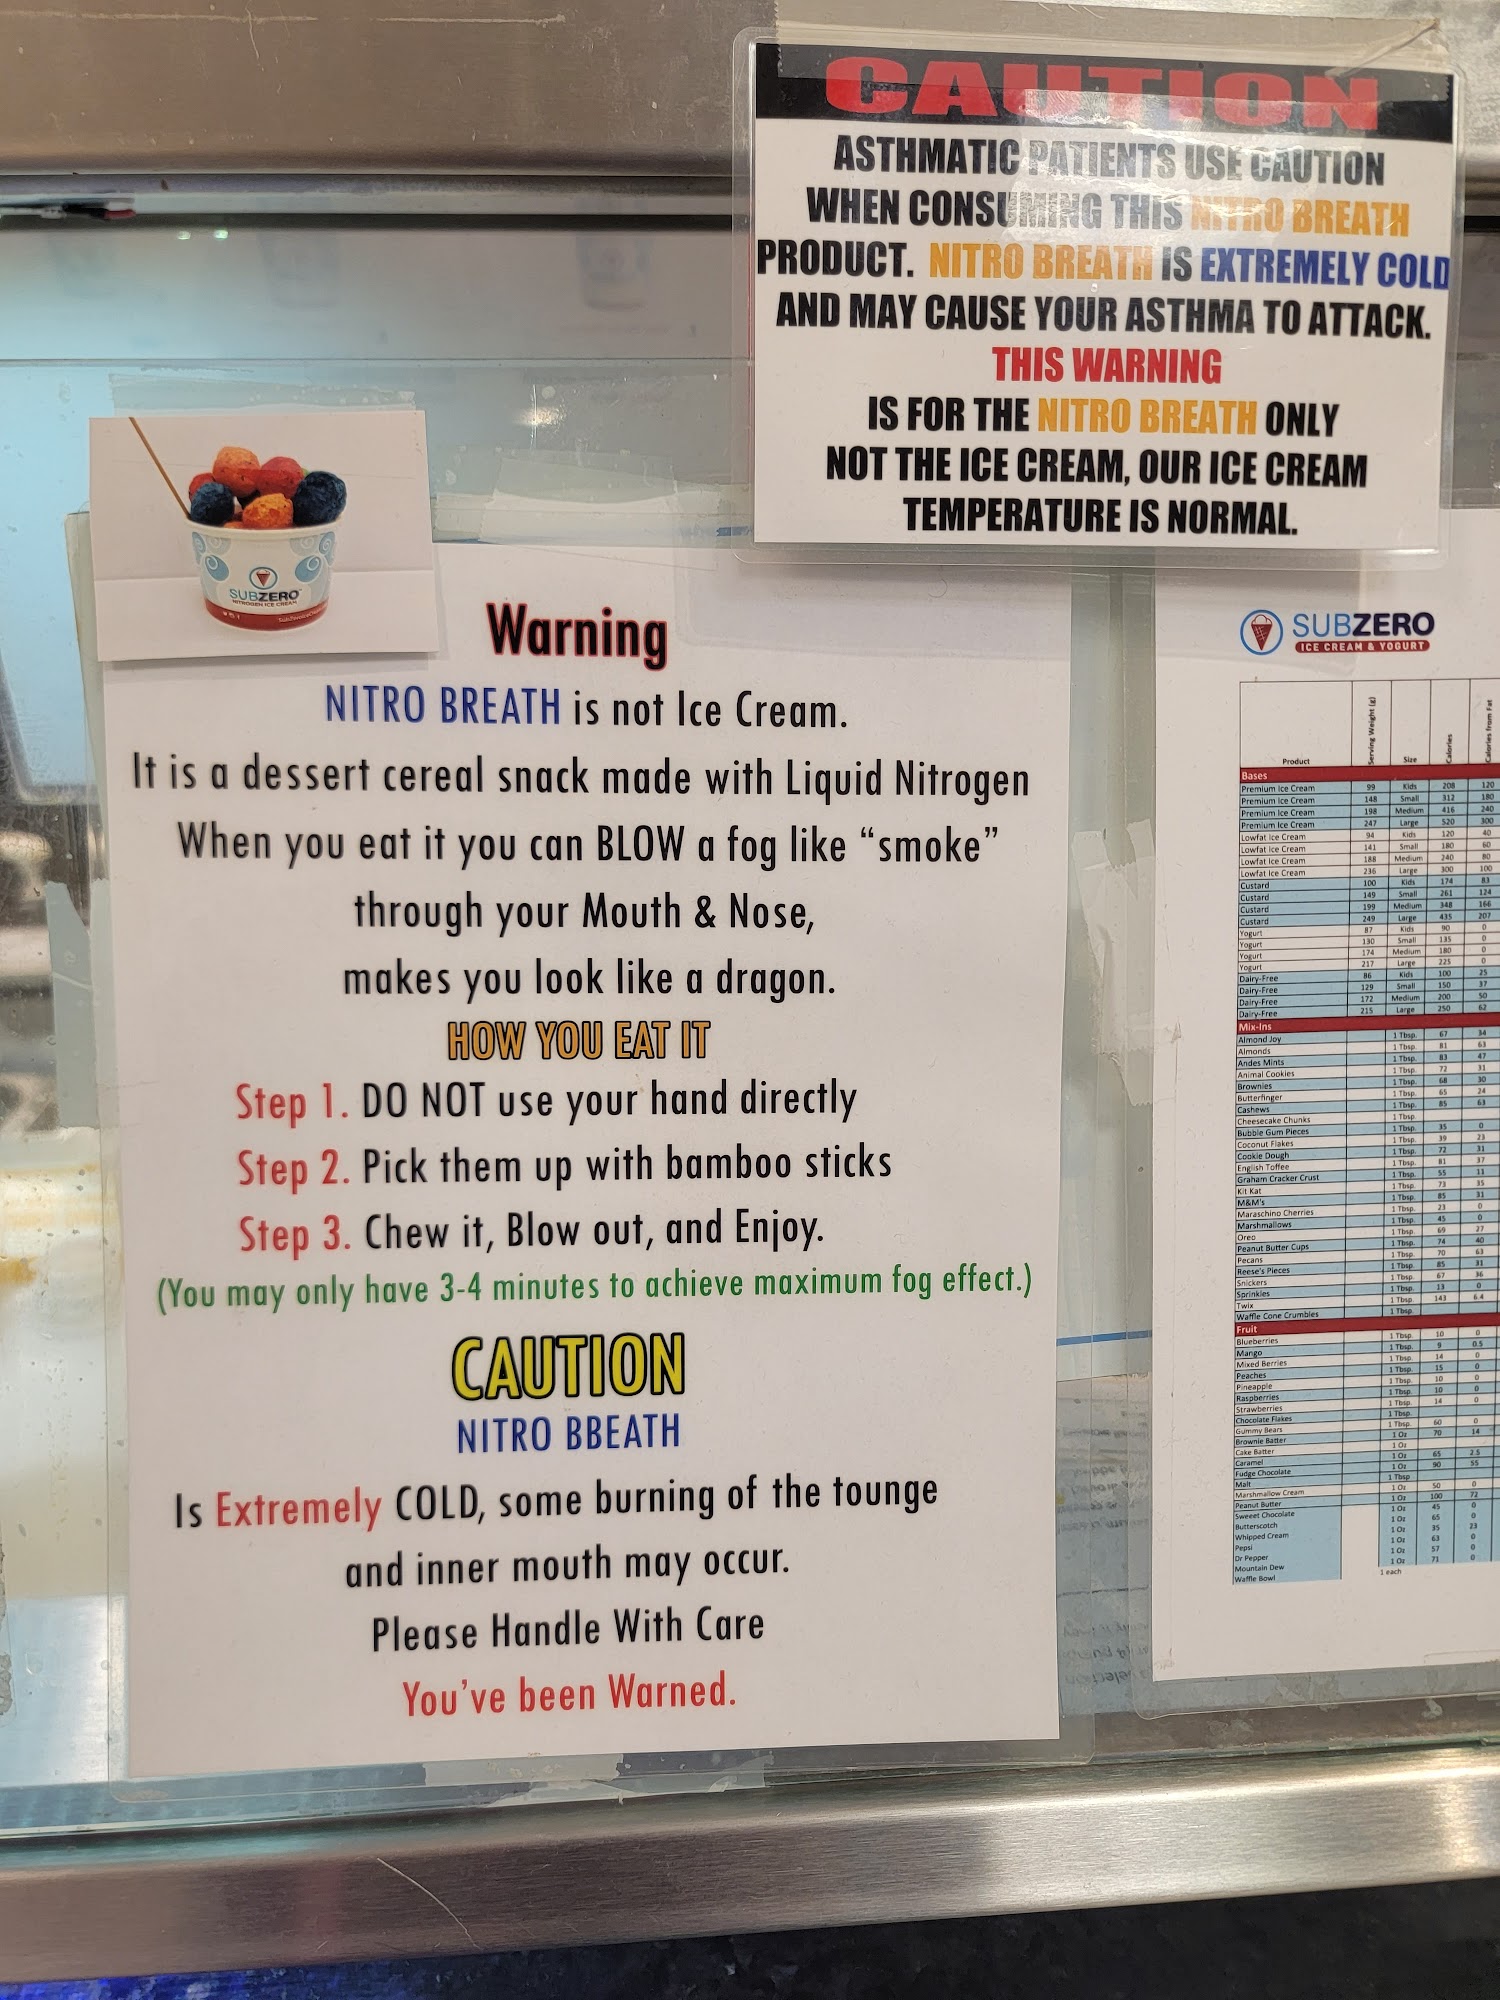 CAUTION
ASTHMATIC PATIENTS USE CAUTION
WHEN CONSUMING THIS NITRO BREATH
PRODUCT. NITRO BREATH IS EXTREMELY COLD
AND MAY CAUSE YOUR ASTHMA TO ATTACK.
THIS WARNING
IS FOR THE NITRO BREATH ONLY
NOT THE ICE CREAM, OUR ICE CREAM
TEMPERATURE IS NORMAL.
SUBZERO
NITROGEN ICE CREAM
Warning
NITRO BREATH is not Ice Cream.
It is a dessert cereal snack made with Liquid Nitrogen
When you eat it you can BLOW a fog like “smoke”
through your Mouth & Nose,
makes you look like a dragon.
HOW YOU EAT IT
Step 1. DO NOT use your hand directly
Step 2. Pick them up with bamboo sticks
Step 3. Chew it, Blow out, and Enjoy.
(You may only have 3-4 minutes to achieve maximum fog effect.)
CAUTION
NITRO BBEATH
Is Extremely COLD, some burning of the tounge
and inner mouth may occur.
Please Handle With Care
You’ve been Warned.
SUBZERO
ICE CREAM & YOGURT
Product Serving Weight (g) Size Calories Calories from Fat
Bases
Premium Ice Cream 99 Kids 208 120
Premium Ice Cream 148 Small 312 180
Premium Ice Cream 198 Medium 416 240
Premium Ice Cream 247 Large 520 300
Lowfat Ice Cream 94 Kids 120 40
Lowfat Ice Cream 141 Small 180 60
Lowfat Ice Cream 188 Medium 240 80
Lowfat Ice Cream 236 Large 300 100
Custard 100 Kids 174 83
Custard 149 Small 261 124
Custard 199 Medium 348 166
Custard 249 Large 435 207
Yogurt 87 Kids 90 0
Yogurt 130 Small 135 0
Yogurt 174 Medium 180 0
Yogurt 217 Large 225 0
Dairy-Free 86 Kids 100 25
Dairy-Free 129 Small 150 37
Dairy-Free 172 Medium 200 50
Dairy-Free 215 Large 250 62
Mix-Ins
Almond Joy 1 Tbsp. 67 34
Almonds 1 Tbsp. 81 63
Andes Mints 1 Tbsp. 83 47
Animal Cookies 1 Tbsp. 72 31
Brownies 1 Tbsp. 68 30
Butterfinger 1 Tbsp. 65 24
Cashews 1 Tbsp. 85 63
Cheesecake Chunks 1 Tbsp.
Bubble Gum Pieces 1 Tbsp. 35 0
Coconut Flakes 1 Tbsp. 39 23
Cookie Dough 1 Tbsp. 72 31
English Toffee 1 Tbsp. 81 37
Graham Cracker Crust 1 Tbsp. 55 11
Kit Kat 1 Tbsp. 73 35
M&M's 1 Tbsp. 85 31
Maraschino Cherries 1 Tbsp. 23 0
Marshmallows 1 Tbsp. 45 0
Oreo 1 Tbsp. 69 27
Peanut Butter Cups 1 Tbsp. 74 40
Pecans 1 Tbsp. 70 63
Reese's Pieces 1 Tbsp. 85 31
Snickers 1 Tbsp. 67 36
Sprinkles 1 Tbsp. 13 0
Twix 1 Tbsp. 143 6.4
Waffle Cone Crumbles 1 Tbsp.
Fruit
Blueberries 1 Tbsp. 10 0
Mango 1 Tbsp. 9 0.5
Mixed Berries 1 Tbsp. 14 0
Peaches 1 Tbsp. 15 0
Pineapple 1 Tbsp. 10 0
Raspberries 1 Tbsp. 10 0
Strawberries 1 Tbsp. 14 0
Chocolate Flakes 1 Tbsp.
Gummy Bears 1 Tbsp. 60 0
Brownie Batter 1 Oz 70 14
Cake Batter 1 Oz
Caramel 1 Oz 65 2.5
Fudge Chocolate 1 Oz 90 55
Malt 1 Tbsp
Marshmallow Cream 1 Oz 50 0
Peanut Butter 1 Oz 100 72
Sweeet Chocolate 1 Oz 45 0
Butterscotch 1 Oz 65 0
Whipped Cream 1 Oz 35 23
Pepsi 1 Oz 63 0
Dr Pepper 1 Oz 57 0
Mountain Dew 1 Oz 71 0
Waffle Bowl 1 each